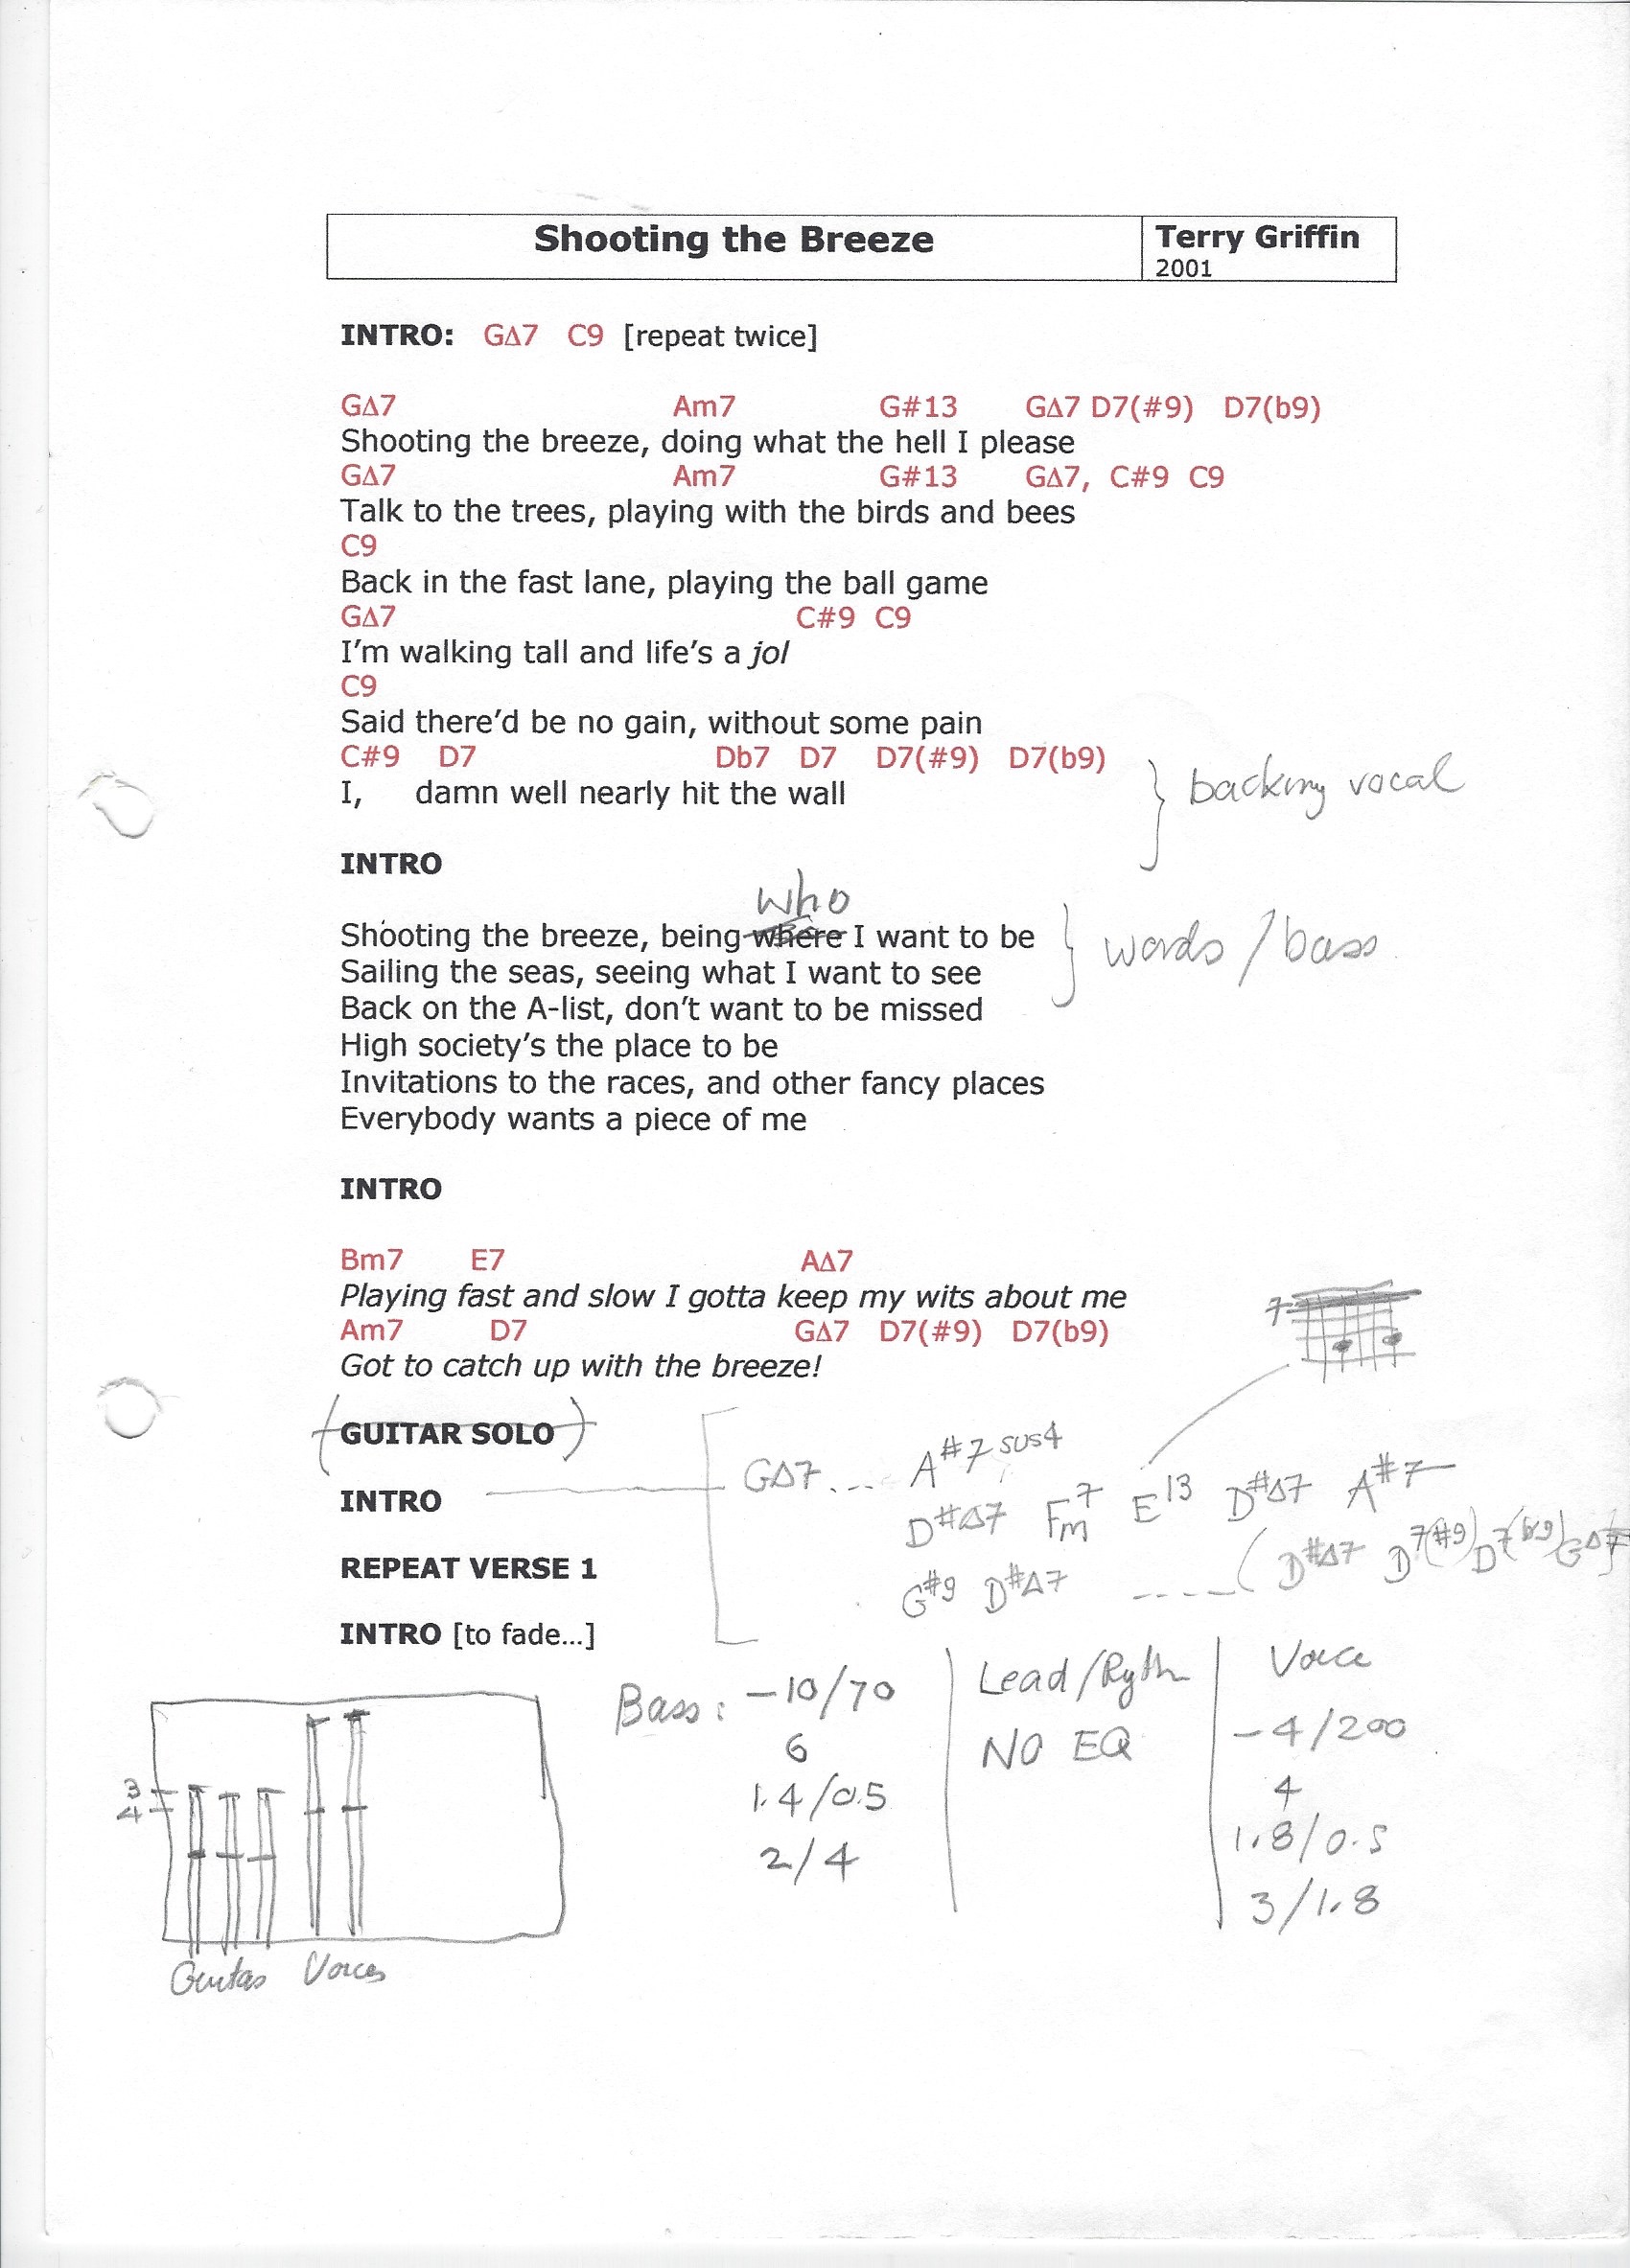 Shooting the Breeze Terry Griffin
2001
INTRO: G∆7 C9 [repeat twice]
G∆7 Am7 G#13 G∆7 D7(#9) D7(b9)
Shooting the breeze, doing what the hell I please
G∆7 Am7 G#13 G∆7, C#9 C9
Talk to the trees, playing with the birds and bees
C9
Back in the fast lane, playing the ball game
G∆7 C#9 C9
I'm walking tall and life's a jol
C9
Said there'd be no gain, without some pain
C#9 D7 Db7 D7 D7(#9) D7(b9)
I, damn well nearly hit the wall
} backing vocal
INTRO
who
Shooting the breeze, being where I want to be } words / bass
Sailing the seas, seeing what I want to see
Back on the A-list, don't want to be missed
High society's the place to be
Invitations to the races, and other fancy places
Everybody wants a piece of me
INTRO
Bm7 E7 A∆7
Playing fast and slow I gotta keep my wits about me
7
Am7 D7 G∆7 D7(#9) D7(b9)
Got to catch up with the breeze!
(GUITAR SOLO)
G∆7 ... A#7sus4
INTRO
D#∆7 Fm7 E13 D#∆7 A#7
REPEAT VERSE 1
G#9 D#∆7 ---- ( D#∆7 D7(#9) D7(b9) G∆7
INTRO [to fade…]
Bass: -10/70
6
1.4/0.5
2/4
Lead/Ryth
NO EQ
Voice
-4/200
4
1.8/0.5
3/1.8
3
4
Guitas Voices